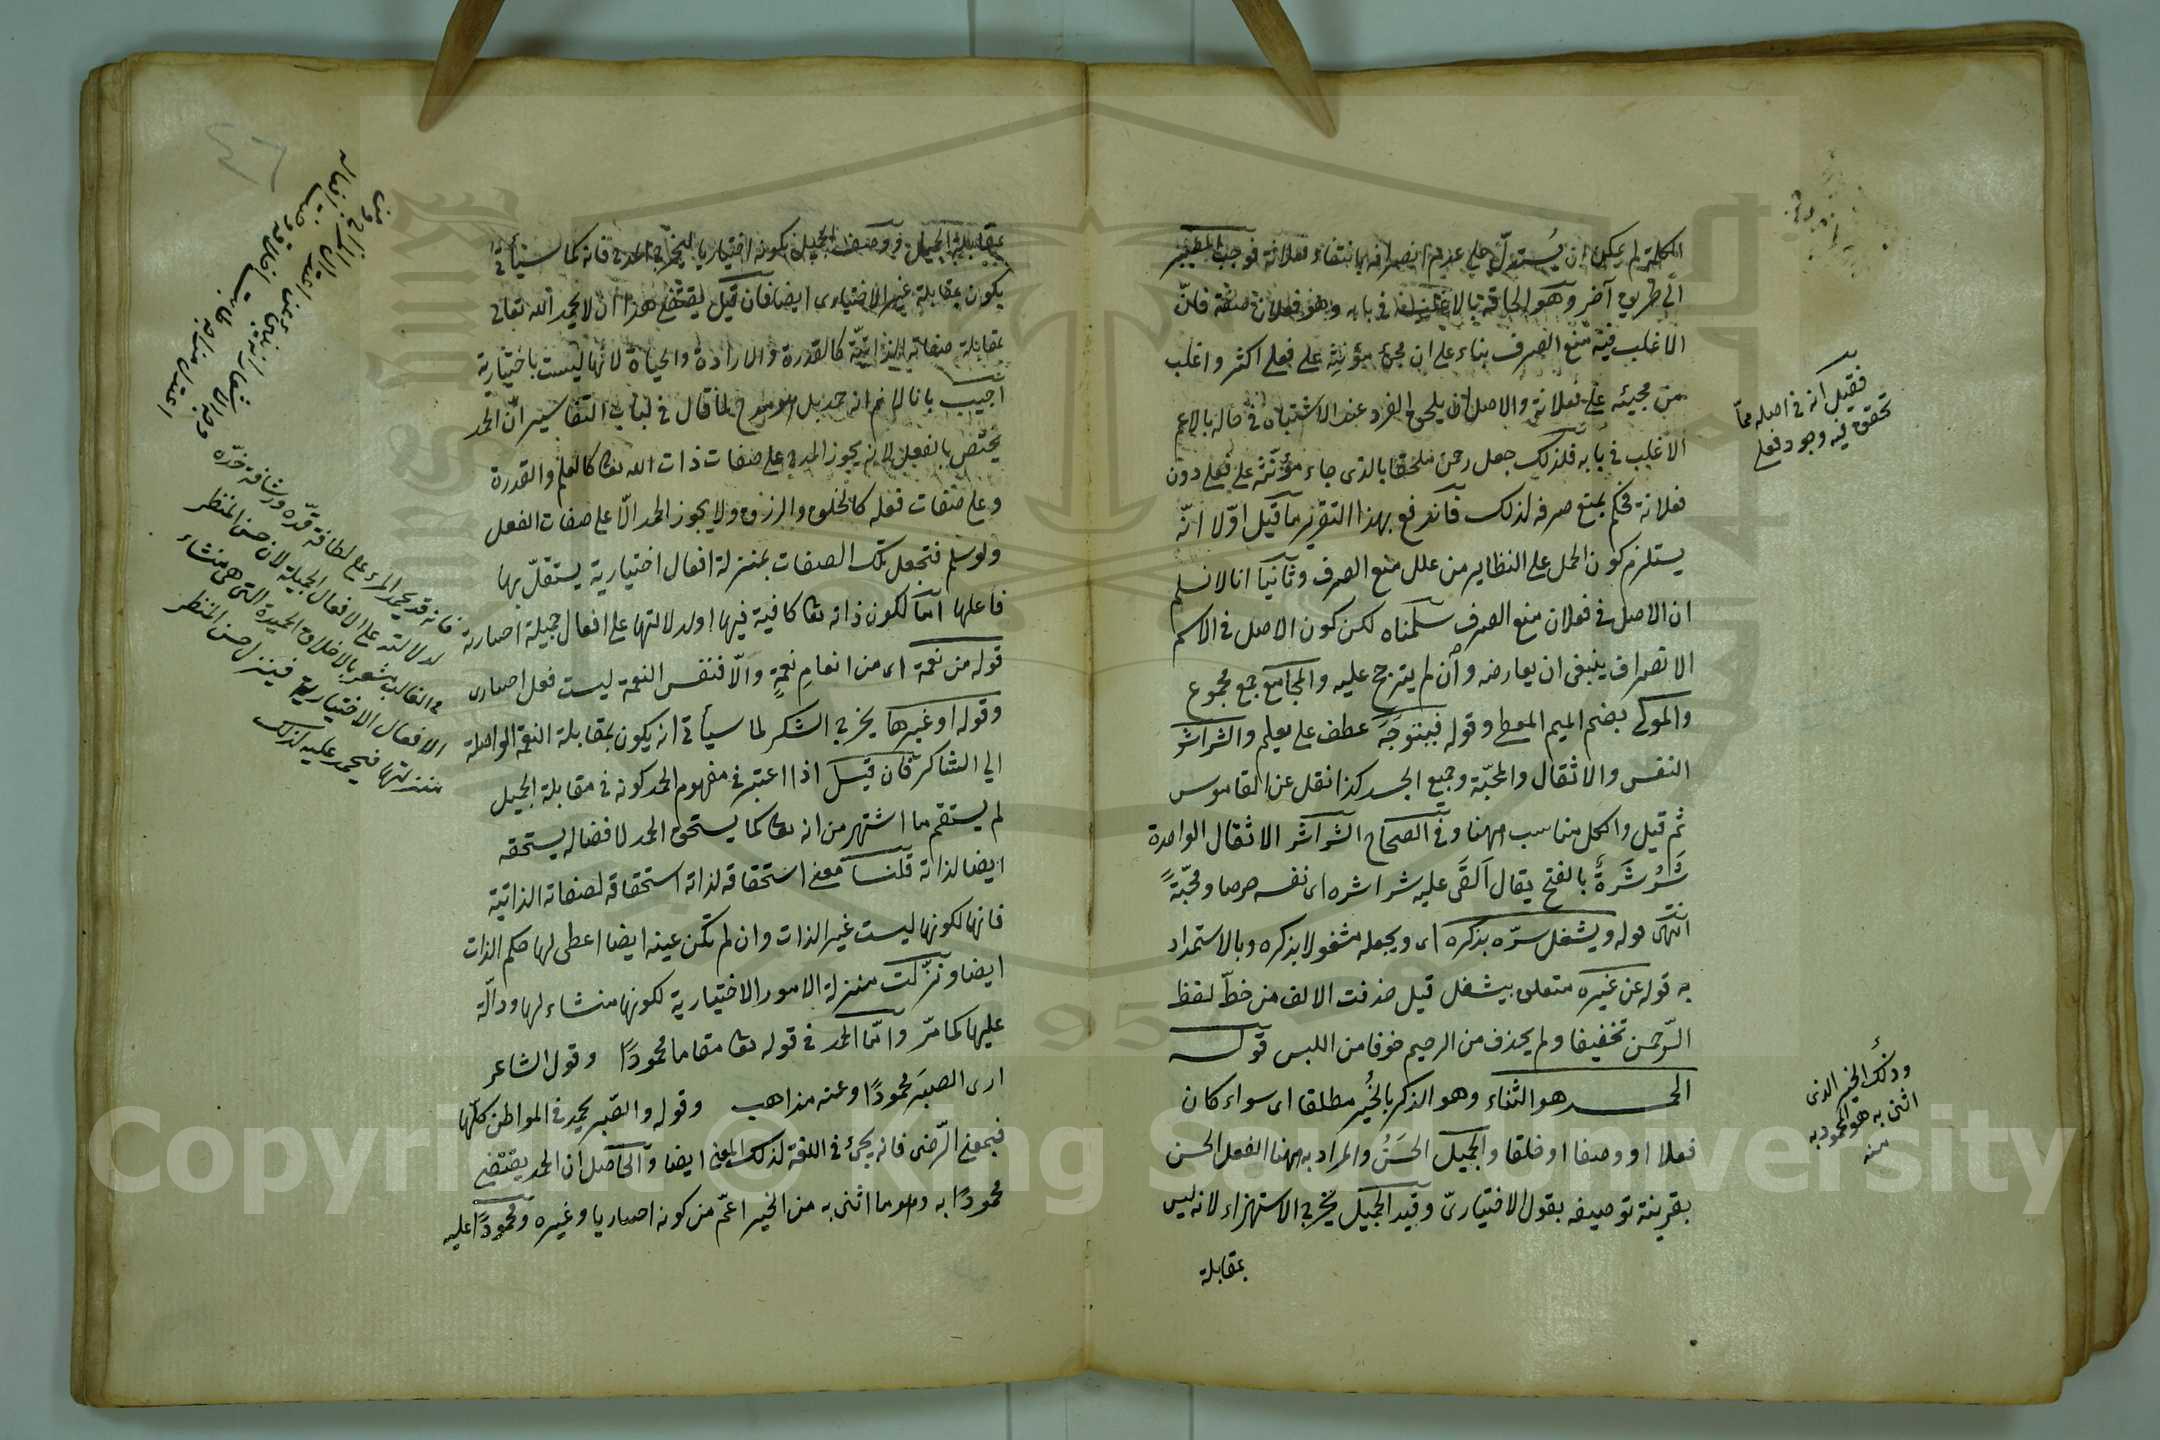 الكلمة لم يمكن ان يُستدلّ على عدم انصرافه بانتفاء فعلانة فوجب المصير
الى طريق آخر وهو الحاقه بالاغلب في بابه وهو فعلان صفة فانّ
الاغلب فيه منع الصرف بناء على ان مجئ مؤنثه على فعلى اكثر واغلب
من مجيئه على فعلانة والاصل ان يلحق الفرد عند الاشتباه في حاله بالاعم
الاغلب في بابه فلذلك جعل رحمن ملحقا بالذى جاء مؤنثه على فعلى دون
فعلانة فحكم بمنع صرفه لذلك فاندفع بهذا التقرير ما قيل اوّلا انّه
يستلزم كون الحمل على النظاير من علل منع الصرف وثانيا انا لا نسلم
ان الاصل في فعلان منع الصرف سلمناه لكن كون الاصل في الاسم
الانصراف ينبغى ان يعارضه وان لم يترجح عليه والمجامع جمع مجموع
والمولى بضم الميم المعطى وقوله فيتوجّه عطف على يعلم والشراشر
النفس والاثقال والمحبّة وجميع الجسد كذا نقل عن القاموس
ثم قيل والكل مناسب ههنا وفي الصحاح الشراشر الاثقال الواحدة
شَرْشَرةٌ بالفتح يقال القَى عليه شراشره اى نفسه حرصا ومحبّةً
انتهى قوله ويشغل سرّه بذكره اى ويجعله مشغولا بذكره وبالاستمداد
به قوله عن غيره متعلق بيشغل قيل حذفت الالف من خطّ لفظ
الرّحمن تخفيفا ولم يحذف من الرحيم خوفا من اللبس قوله
الحمد هو الثناء وهو الذكر بالخُير مطلقا اى سواء كان
فعلا او وصفا او خلقا والجميل الحَسَنُ والمراد به ههنا الفعل الحسن
بقرينة توصيفه بقول الاختيارىّ وقيد الجميل يخرج الاستهزاء لانه ليس
بمقابلة
فقيل انه في اصله ممّا
تحقق فيه وجود فعلى
وذلك الخير الذى
اثنى به هو المحمود به
منه
بمقابلة الجميل ووصف الجميل بكونه اختياريا ليخرج المدح فانه كما سيأتى
يكون بمقابلة غير الاختيارى ايضا فان قيل يقتضى هذا ان لا يحمد الله تعالى
بمقابلة صفاته الذاتيّة كالقدرة والارادة والحياة لانها ليست باختيارية
اجيب بانا لا نم انه حمد بل هو مدح لما قال في لباب التفاسير انّ الحمد
يختص بالفعل لانه يجوز المدح على صفات ذات الله تعا كالعلم والقدرة
وعلى صفات فعله كالخلق والرزق ولا يجوز الحمد الّا على صفات الفعل
ولو سلم فتجعل تلك الصفات بمنزلة افعال اختيارية يستقلّ بها
فاعلها امّا لكون ذاته تعا كافية فيها او لدلالتها على افعال جميلة اختيارية
قوله من نعمة اى من انعامِ نعمةٍ والّا فنفس النعمة ليست فعل اختيارى
وقوله او غيرها يخرج الشكر لما سيأتى انه يكون بمقابلة النعمة الواصلة
الى الشاكر فان قيل اذا اعتبر في مفهوم الحمد كونه في مقابلة الجميل
لم يستقم ما اشتهر من انه تعا كما يستحق الحمد لافضاله يستحقه
ايضا لذاته قلنا معنى استحقاقه لذاته استحقاقه لصفاته الذاتية
فانها لكونها ليست غير الذات وان لم تكن عينه ايضا اعطى لها حكم الذات
ايضا ونزّلت منزلة الامور الاختيارية لكونها منشاء لها ودالّة
عليها كما مرّ وامّا الحمد في قوله تعا مقاما محمودًا وقول الشاعر
ارى الصبَر محمودًا وعنه مذاهب وقوله والصبر يحمد في المواطن كلّها
فبمعنى الرّضى فانه يجئ في اللغة لذلك المعنى ايضا والحاصل ان الحمد يقتضى
محمودًا به وهو ما اثنى به من الخير اعّم من كونه اختياريا وغيره ومحمودًا عليه
فانه قد يحمد المرء على لطافة قدّه ورشاقة خدّه
لدلالته على الافعال الجميلة لان حسن المنظر
في الغالب يشعر بالاخلاق الحميدة التى هى منشاء
الافعال الاختيارية فينزل حسن المنظر
منزلتها فيحمد عليه لذلك